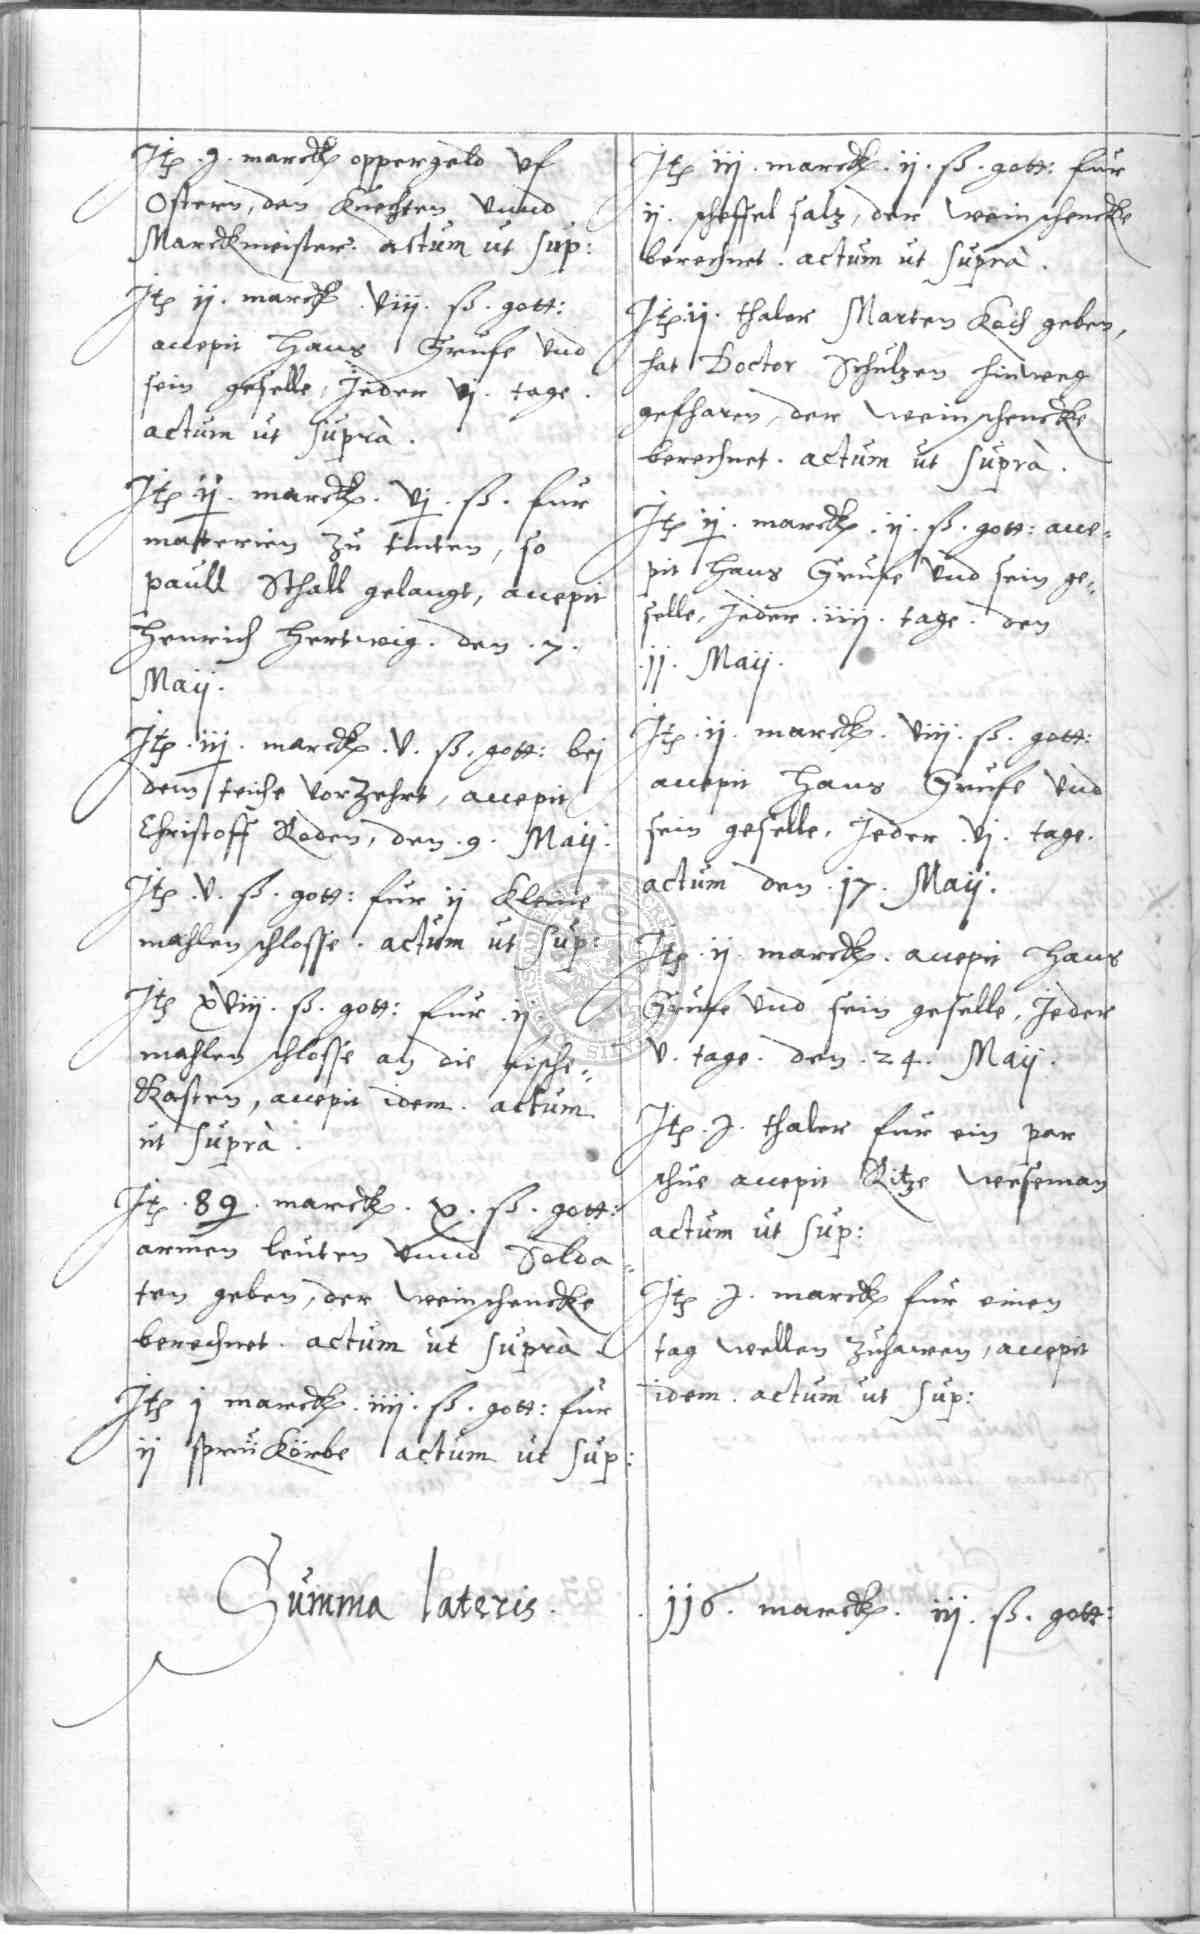 Itp .9. marck oppergeld vf
Ostern, den Knechten vnnd
Marckmeister. actum ut sup:
Itp ij. marck viij. ß. gott:
accepit Hans Grufe vnd
sein geselle, Jeder vj. tage.
actum ut suprà.
Itp ij. marck. vj. ß. fur
materien zu tinten, so
paull Schall gelangt, accepit
Henrich Hertwig. den .7.
Maij.
Itp .iij. marck .v. ß. gott: bej
dem teiche vorzehrt, accepit
Christoff Roden, den .9. Maij.
Itp .v. ß. gott: fur ij kleine
mahlenschlosse. actum ut sup:
Itp xviij. ß. gott: fur .ij.
mahlenschlosse an die fische-
kasten, accepit idem. actum
ut suprà.
Itp .89. marck. x. ß. gott:
armen leuten vnnd Solda-
ten geben, der weinschencke
berechnet. actum ut suprà.
Itp j marck .iiij. ß. gott: fur
ij sprukörbe actum ut sup:
Itp iij. marck .ij. ß. gott: fur
ij. scheffel salz, der weinschencke
berechnet. actum ut suprà.
Itp ij. thaler Marten Koch geben,
hat Doctor Schulzen hinweg
gefharen, der weinschencke
berechnet. actum ut suprà.
Itp ij. marck .ij. ß. gott: acce-
pit Hans Grufe vnd sein ge-
selle, Jeder .iiij. tage. den
.jj. Maij.
Itp .ij. marck. viij. ß. gott:
accepit Hans Grufe vnd
sein geselle, Jeder .vj. tage.
actum den .j7. Maij.
Itp .ij. marck. accepit Hans
Grufe vnd sein geselle, Jeder
v. tage. den .24. Maij.
Itp .J. thaler fur ein par
schue accepit Ritze Weseman
actum ut sup:
Itp .J. marck fur einen
tag wellen zuhawen, accepit
idem. actum ut sup:
Summa lateris. .jj6. marck. iij. ß. gott: